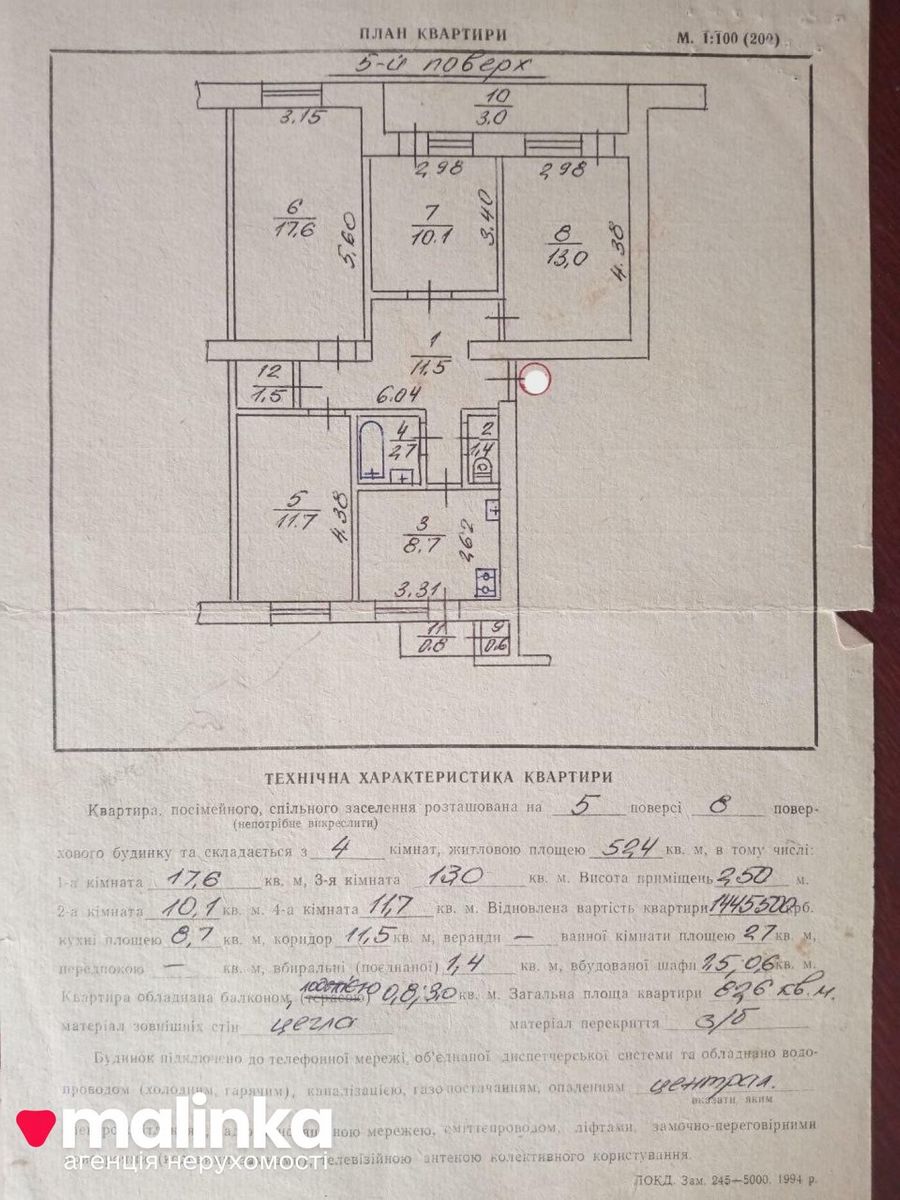 ПЛАН КВАРТИРИ
М. 1:100 (200)
5-й поверх
10
3.0
3.15
2,98
2,98
6
17.6
5,60
7
10.1
3,40
8
13,0
4.38
1
11.5
6.04
12
1.5
4
2,7
2
1,4
5
11.7
4.38
3
8.7
2,62
3.31
11
0.8
9
0.6
ТЕХНІЧНА ХАРАКТЕРИСТИКА КВАРТИРИ
Квартира, посімейного, спільного заселення розташована на 5 поверсі 8 повер-
(непотрібне викреслити)
хового будинку та складається з 4 кімнат, житловою площею 52,4 кв. м, в тому числі:
1-а кімната 17,6 кв. м, 3-я кімната 13,0 кв. м. Висота приміщень 2,50 м.
2-а кімната 10,1 кв. м. 4-а кімната 11,7 кв. м. Відновлена вартість квартири 1445500 крб.
кухні площею 8,7 кв. м, коридор 11,5 кв. м, веранди — ванної кімнати площею 2,7 кв. м,
передпокою — кв. м, вбиральні (поєднаної) 1,4 кв. м, вбудованої шафи 1,5, 0,6 кв. м.
Квартира обладнана балконом, (терасою) лоджією 0,8; 3,0 кв. м. Загальна площа квартири 82,6 кв. м.
матеріал зовнішніх стін цегла матеріал перекриття з/б
Будинок підключено до телефонної мережі, об'єднаної диспетчерської системи та обладнано водо-
проводом (холодним, гарячим), каналізацією, газопостачанням, опаленням централ.
вказати яким
мережею, сміттєпроводом, ліфтами, замочно-переговірними
телевізійною антеною колективного користування.
malinka
агенція нерухомості
ЛОКД. Зам. 245—5000. 1994 р.